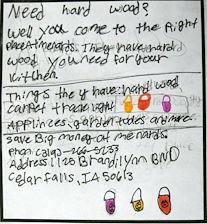 Need hard wood?
Well you come to the Right
place menards. They have hard
wood you need for your
kitchen.
Things they have hard wood
carpet tracs light
Appliances, garden tools and more.
save Big money at menards
phon (319)-266-5233
Address: 1125 Brandilynn BND
Cedar falls, IA 50613